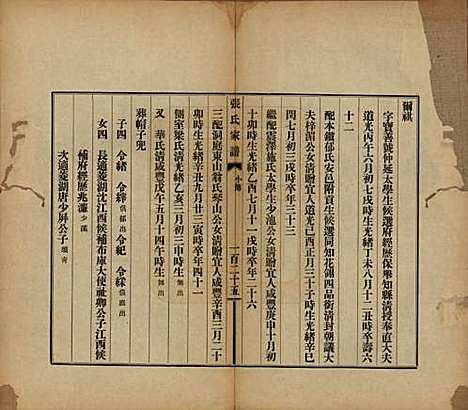 彌祺
字寶善號仲延太學生候選府經歷保舉知縣清授奉直大夫
道光丙午六月初七戌時生光緒丁未八月十二丑時卒壽六
十二
配本鎮郁氏安邑甫貢生候選同知花翎四品銜清封朝議大
夫梓湄公女清贈宜人道光己酉正月三十子時生光緒辛巳
閏七月初三戌時卒年三十三
繼配震澤施氏太學生少池公女清贈宜人咸豐庚申十月初
十卯時生光緒乙酉七月十一戌時卒年二十六
張氏家譜
一百二十五
三配洞庭東山翁氏琴山公女清贈宜人咸豐辛酉三月二十
卯時生光緒辛丑九月廿三寅時卒年四十一
側室梁氏清光緒乙亥三月初三申時生 無出
又 華氏清咸豐戊午五月十四午時生 無出
葬帽子兜
子四 令緒 令繹 俱郁出 令紀 令綵 俱翁出
女四 長適菱湖沈江西候補布庫大使祉卿公子江西候
補府經歷兆濂 少溪
次適菱湖唐少屏公子